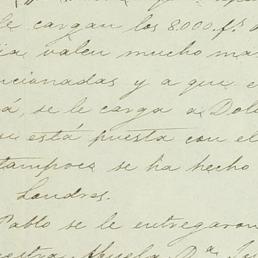 le cargan los 8.000 f.s
valen mucho ma
ncionadas y a que e
á, se le carga a Dol
su está puesta con el
tampoco se ha hecho
Londres.
Pablo se le entregaron
estra Abuela D.a Ju